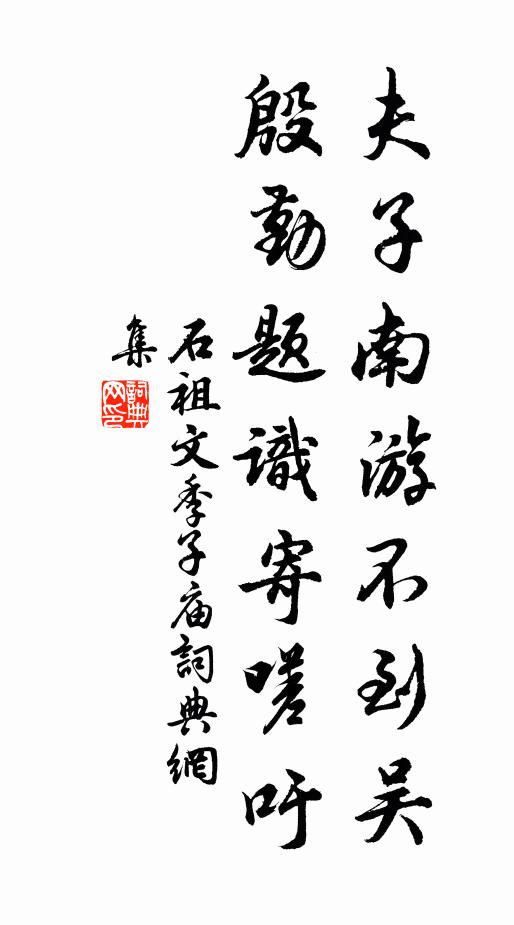 夫子南游不到吴
殷勤题識寄嗟吁
石祖文季子庙詞典網
集
詞典网印